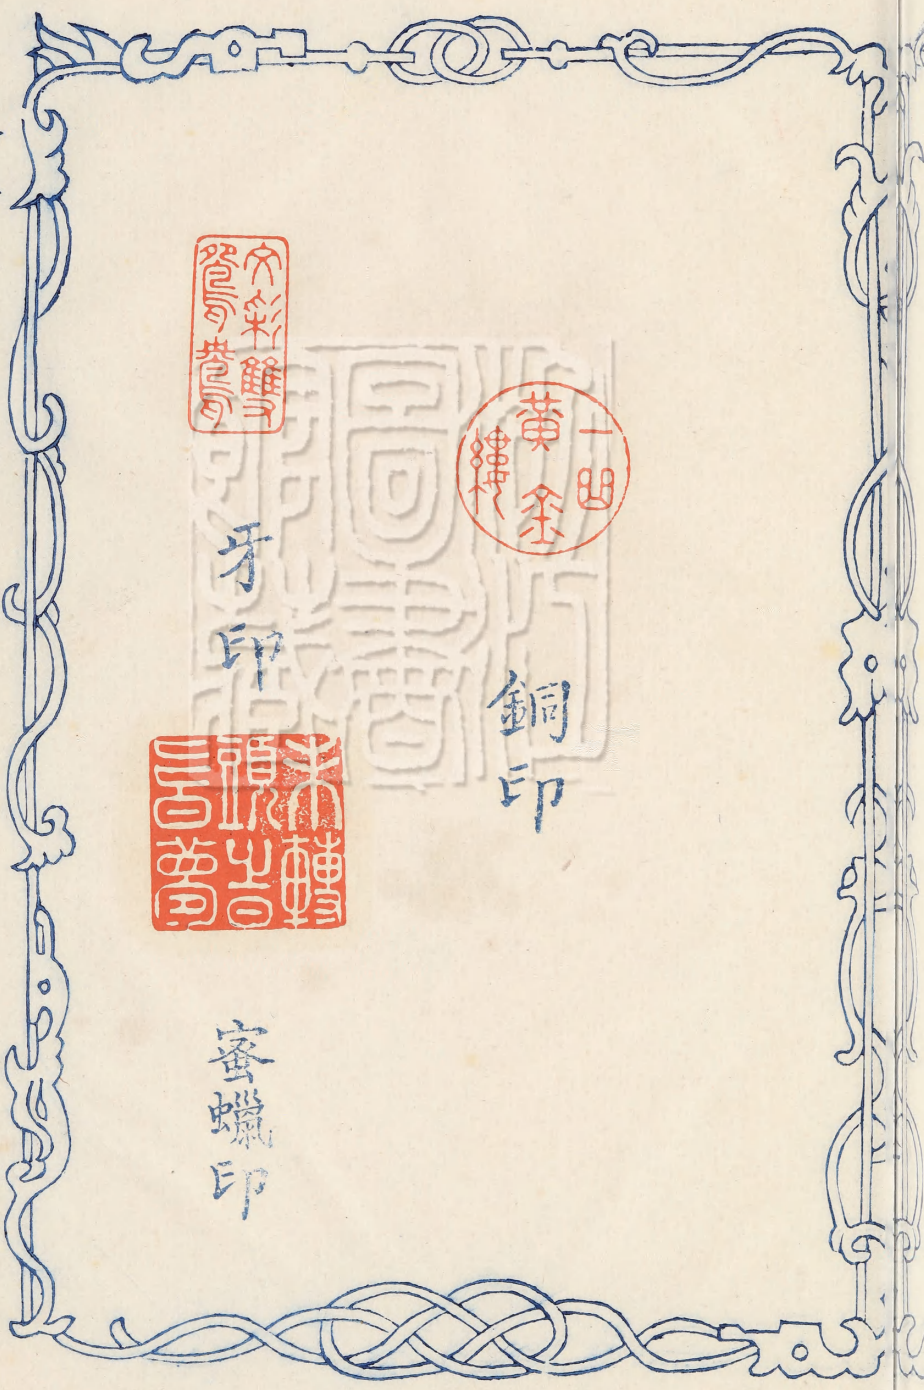 一曲黃金縷
銅印
文彩雙鴛鴦
牙印
未轉頭旹皆夢
蜜蠟印
浙江圖書館藏